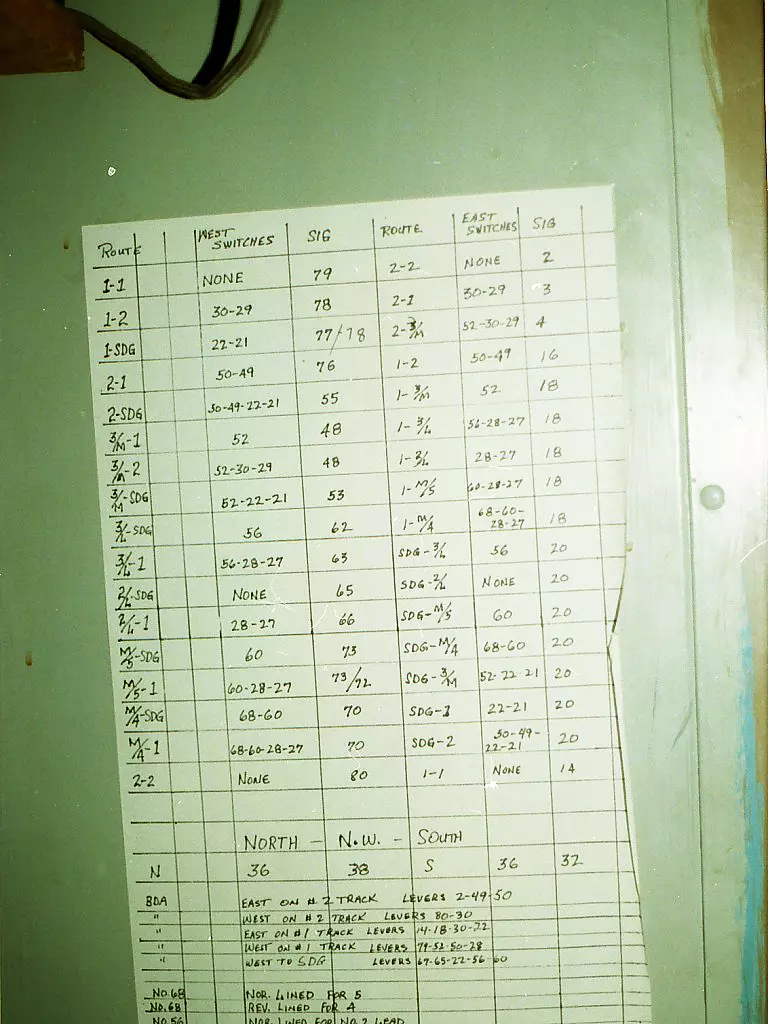 ROUTE WEST SWITCHES SIG ROUTE EAST SWITCHES SIG
1-1 NONE 79 2-2 NONE 2
1-2 30-29 78 2-1 30-29 3
1-SDG 22-21 77/78 2-3/M 52-30-29 4
2-1 50-49 76 1-2 50-49 16
2-SDG 50-49-22-21 55 1-3/M 52 18
3/M-1 52 48 1-3/L 56-28-27 18
3/M-2 52-30-29 48 1-2/L 28-27 18
3/M-SDG 52-22-21 53 1-M/5 60-28-27 18
3/L-SDG 56 62 1-M/4 68-60-28-27 18
3/L-1 56-28-27 63 SDG-3/L 56 20
2/L-SDG NONE 65 SDG-2/L NONE 20
2/L-1 28-27 66 SDG-M/5 60 20
M/5-SDG 60 73 SDG-M/4 68-60 20
M/5-1 60-28-27 73/72 SDG-3/M 52-22-21 20
M/4-SDG 68-60 70 SDG-1 22-21 20
M/4-1 68-60-28-27 70 SDG-2 50-49-22-21 20
2-2 NONE 80 1-1 NONE 14
NORTH - N.W. - SOUTH
N 36 38 S 36 32
BDA EAST ON #2 TRACK LEVERS 2-49-50
" WEST ON #2 TRACK LEVERS 80-30
" EAST ON #1 TRACK LEVERS 14-18-30-22
" WEST ON #1 TRACK LEVERS 79-52-50-28
" WEST TO SDG LEVERS 67-65-22-56-60
NO.68 NOR. LINED FOR 5
NO.68 REV. LINED FOR 4
NO.56 NOR. LINED FOR NO.2 LEAD